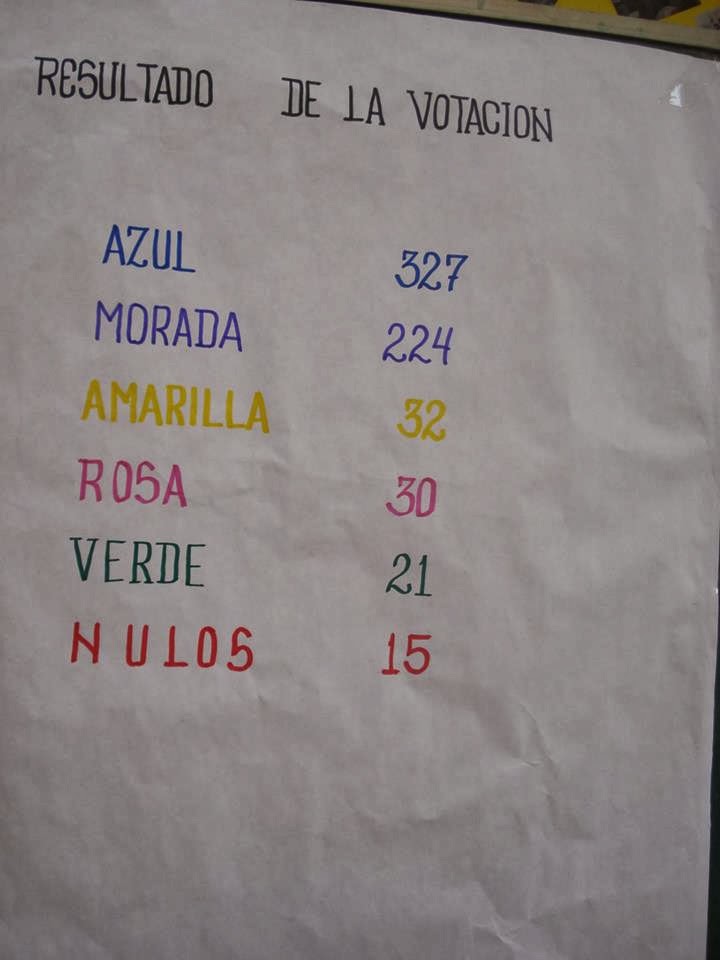 RESULTADO DE LA VOTACION
AZUL 327
MORADA 224
AMARILLA 32
ROSA 30
VERDE 21
NULOS 15